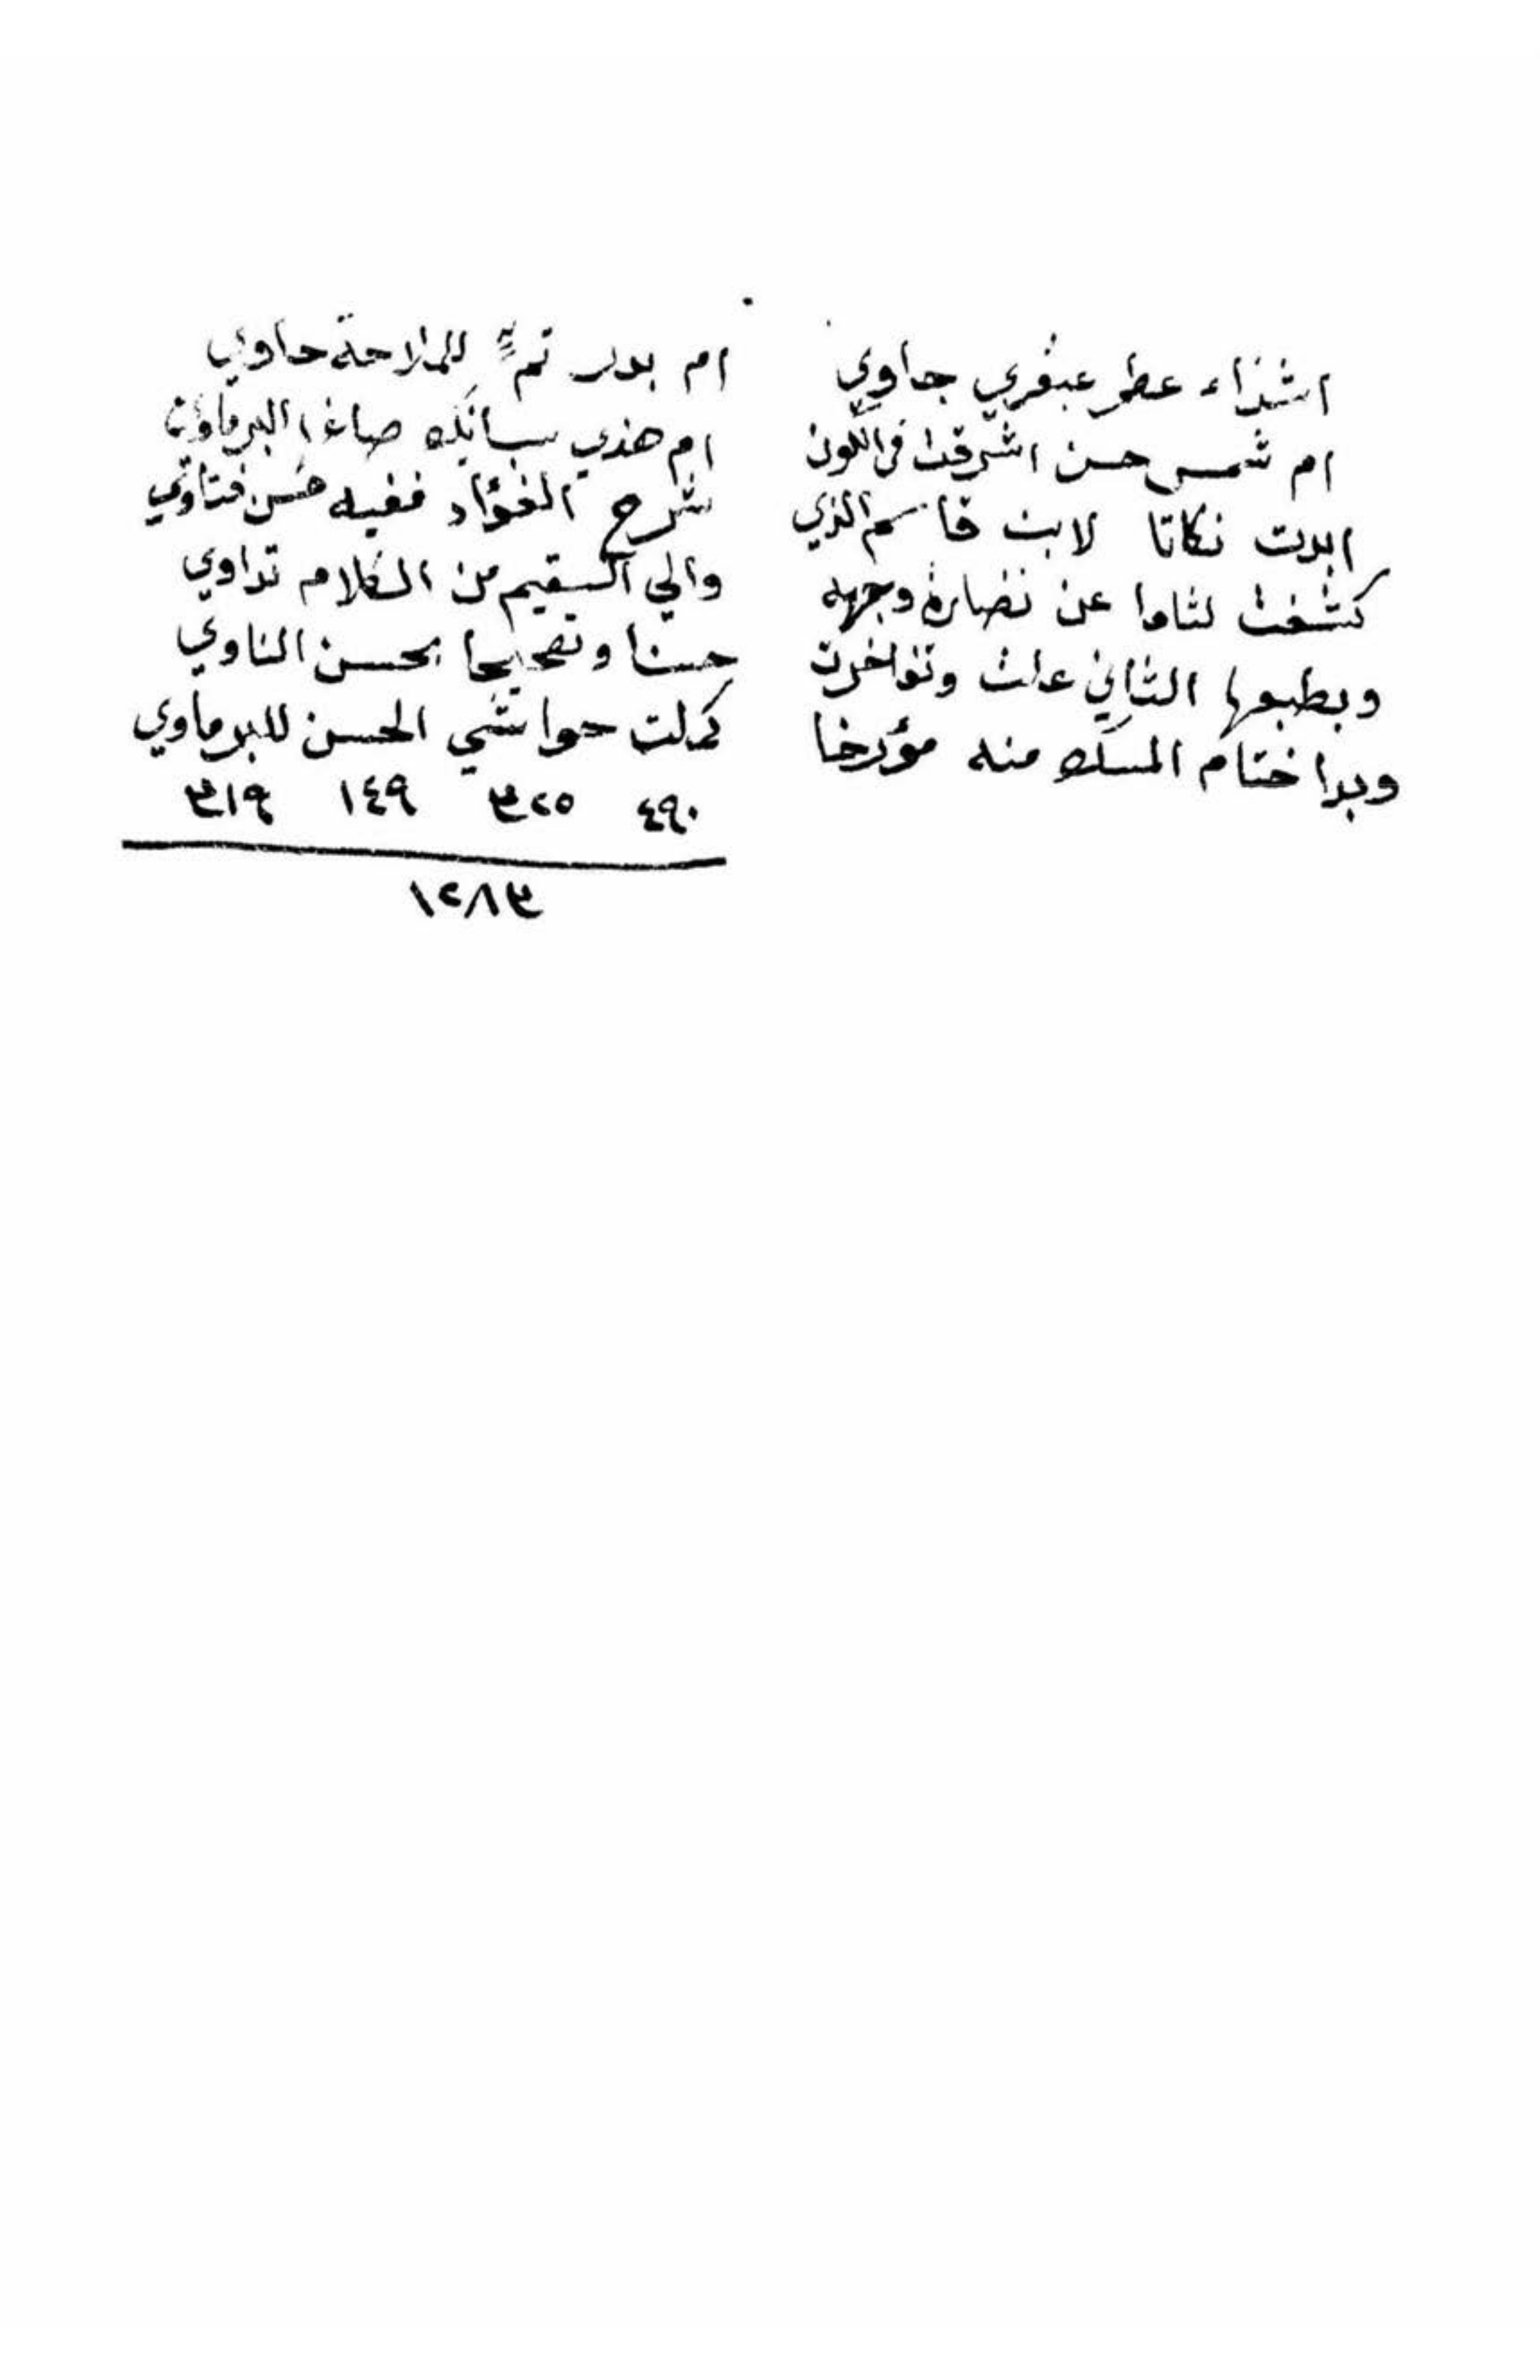 اشذاء عطر عبقري جاوي ام بدر تمٍّ للملاحة حاوي
ام شمس حسن اشرقت في الكون ام هذي سبائك صاغها البرماوي
ابدت نكاتا لابن قاسم الذي شرح الفؤاد ففيه حُسن فتاوي
كشفت لثاما عن نضارة وجهه والي السقيم من الكلام تداوي
وبطبعها الثاني علت وتفاخرت حسنا وتصحيحا بحسن الناوي
وبدا ختام المسك منه مؤرخا كملت حواشي الحسن للبرماوي
٤٩٠ ٣٢٥ ١٤٩ ٣١٩
١٢٨٣